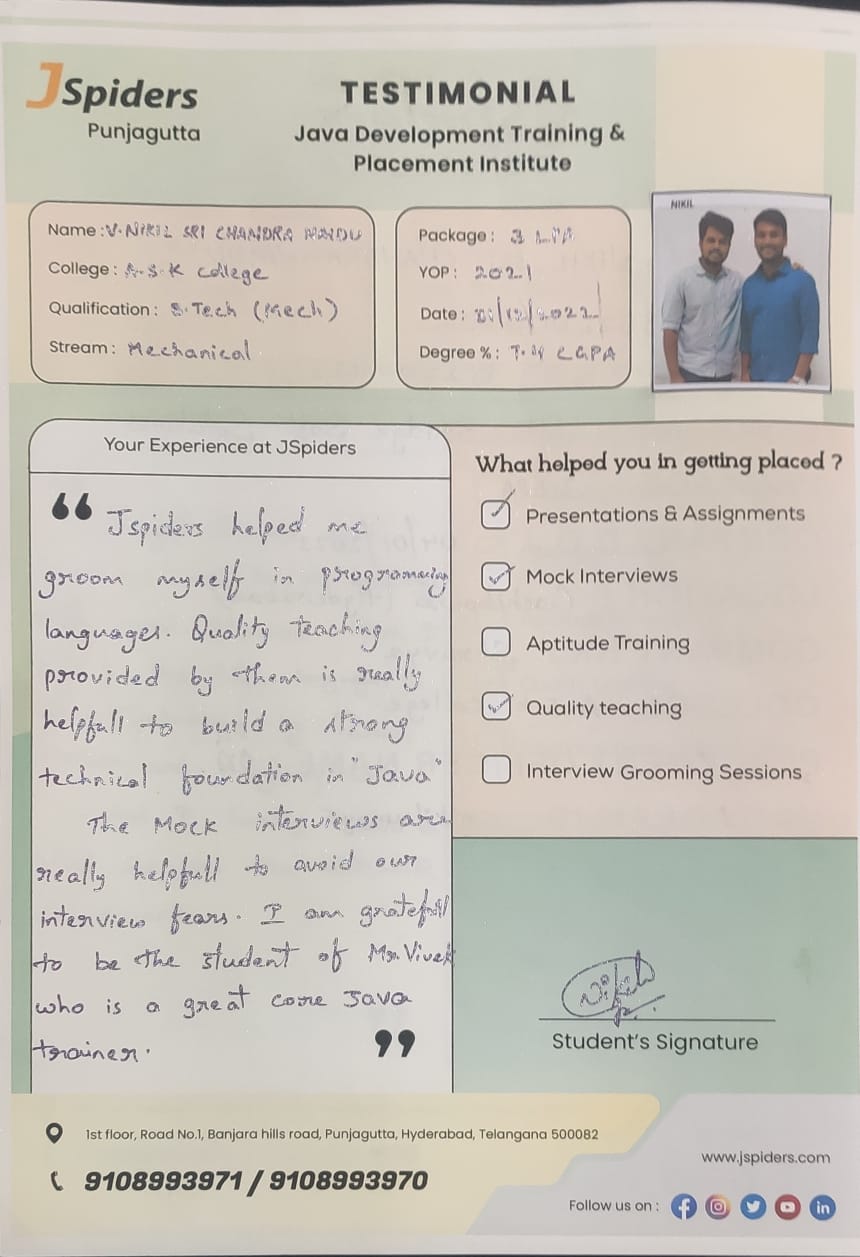 JSpiders
Punjagutta
TESTIMONIAL
Java Development Training &
Placement Institute
Name : V. NIKIL SRI CHANDRA
College : A.S.K College
Qualification : B.Tech (Mech)
Stream : Mechanical
Package : 3 LPA
YOP : 2021
Date : /12/2022
Degree % : CGPA
NIKIL
Your Experience at JSpiders
“ Jspiders helped me
groom myself in programming
languages. Quality teaching
provided by them is really
helpfull to build a strong
technical foundation in "Java"
The Mock interviews are
really helpfull to avoid our
interview fears. I am gratefull
to be the student of Mr. Vivek
who is a great core Java
trainer. ”
What helped you in getting placed ?
Presentations & Assignments
Mock Interviews
Aptitude Training
Quality teaching
Interview Grooming Sessions
Student's Signature
1st floor, Road No.1, Banjara hills road, Punjagutta, Hyderabad, Telangana 500082
9108993971 / 9108993970
www.jspiders.com
Follow us on :